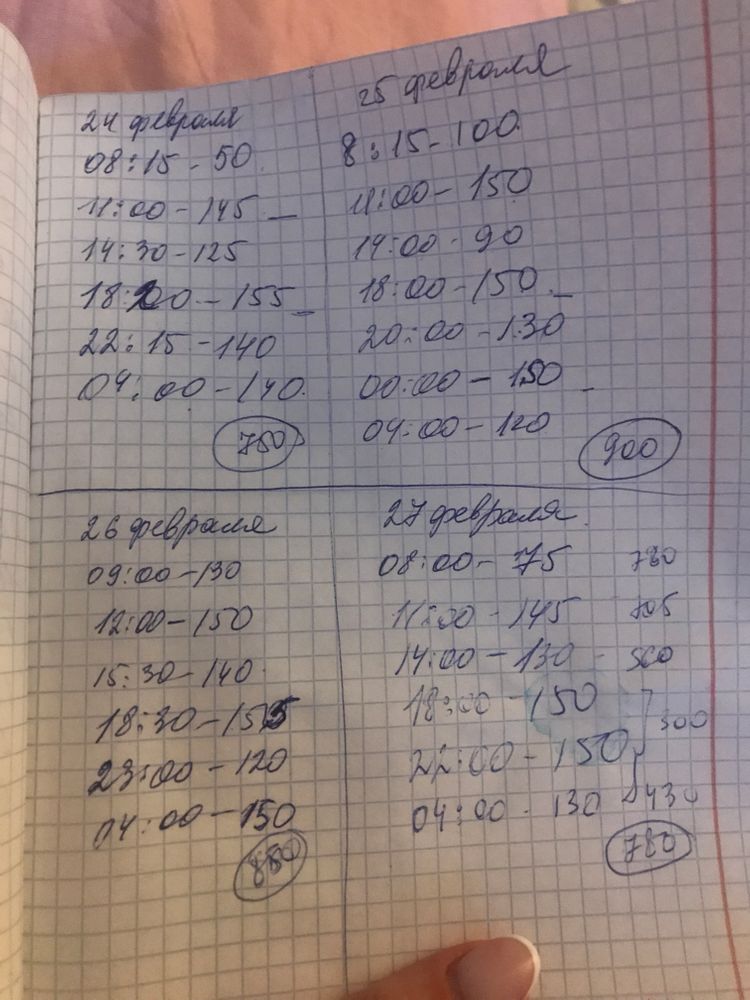 24 февраля
08:15-50
11:00-145 _
14:30-125
18:00-155 _
22:15-140
04:00-140.
750
25 февраля
8:15-100
11:00-150
14:00-90
18:00-150 _
20:00-130
00:00-150 _
04:00-120
900
26 февраля
09:00-130
12:00-150
15:30-140
18:30-155
23:00-120
04:00-150
27 февраля
08:00-75 780
11:00-145 705
14:00-130 - 560
18:00-150
300
22:00-150
04:00-130 430
780